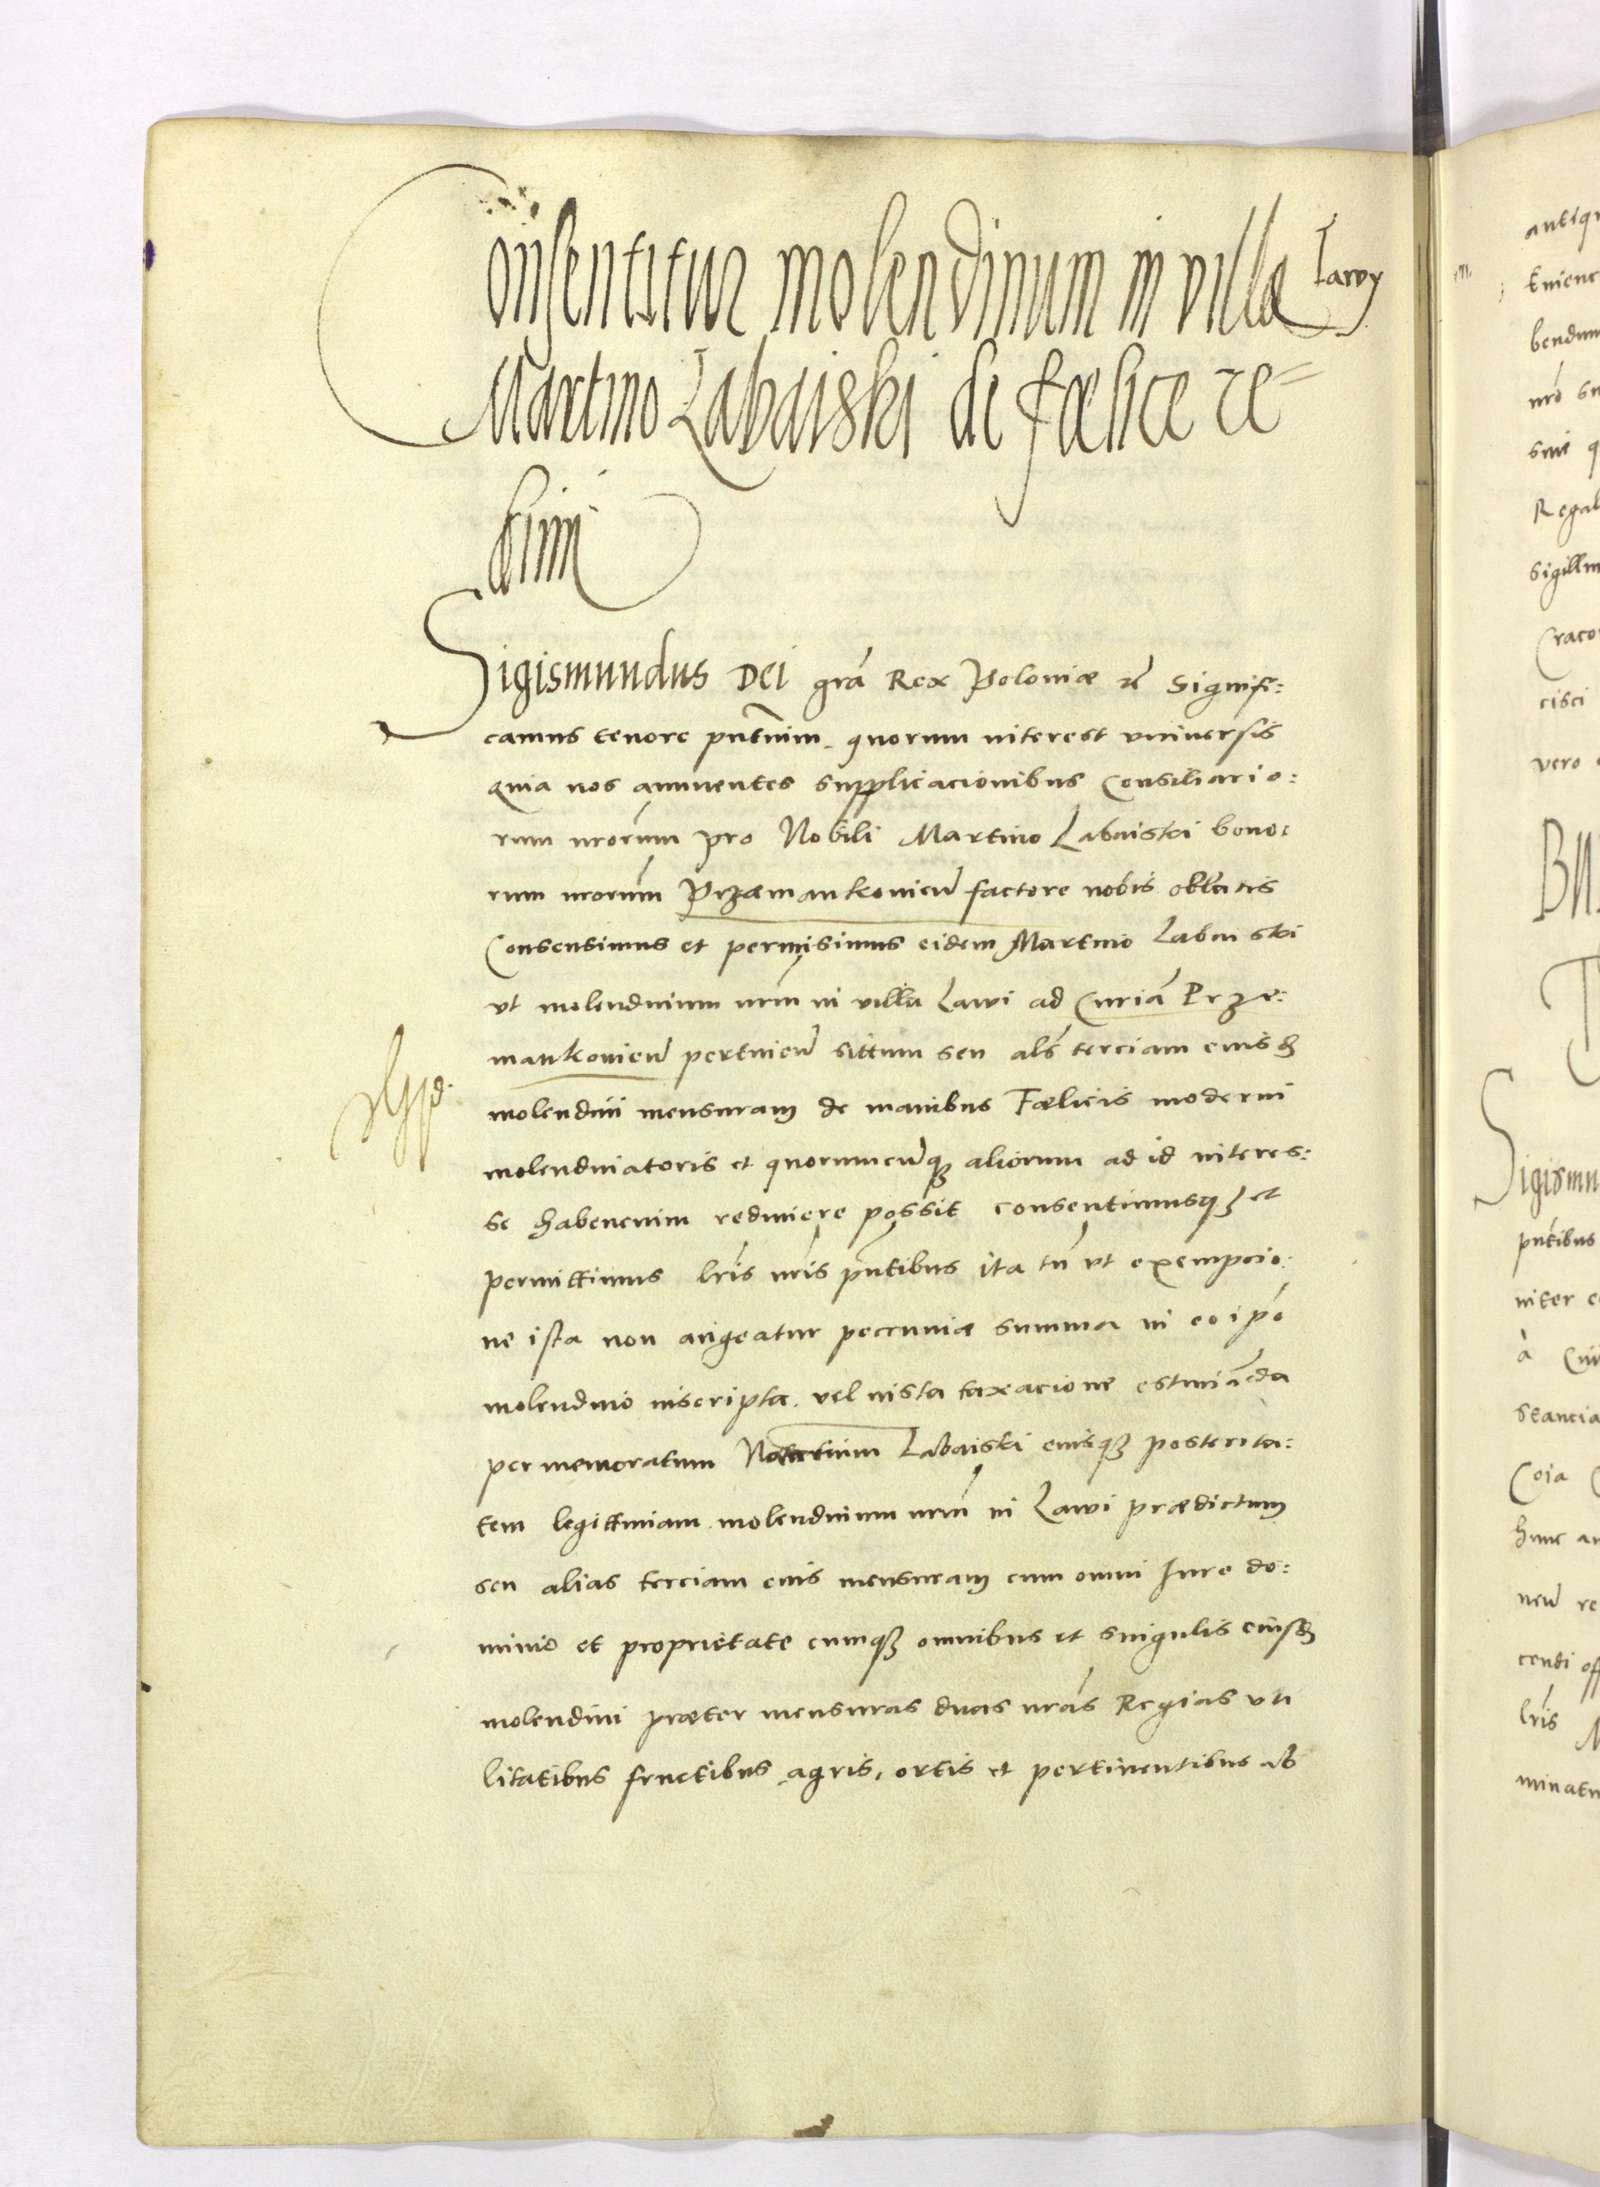 Consentitur molendinum in villa Lawy
Martino Labaiski de fœlice re=
dimi
Sigismundus Dei grã Rex Poloniæ &c Signifi:
camus tenore pñtium. quorum interest universis
quia nos annuentes supplicacionibus Consiliario:
rum nrorum pro Nobili Martino Labaiski bono:
rum nrorum Przæmankovieñ factore nobis oblatis
Consensimus et permisimus eidem Martino Labaiski
ut molendinum nrm in villa Lawi ad Curiã Przæ:
mankovieñ pertineñ sittum seu als terciam eius
molendini mensuram de manibus Fœlicis moderni
molendinatoris et quorumcunq; aliorum ad id interes:
se habencium redimere possit consentimusq; et
permittimus lris nris pñtibus ita tñ ut exempcio:
ne ista non augeatur pecuniæ summa in eo ipo
molendino inscripta. vel iusta taxacione estimãda
per memoratum Martinum Labaiski eiusq; posterita:
tem legittimam. molendinum nrm in Lawi prædictum
seu alias terciam eius mensuram cum omni Iure do:
minio et proprietate cumq; omnibus et singulis eiusdem
molendini præter mensuras duas nras Regias uti
litatibus fructibus agris, ortis et pertinentibus ab
antiqu
bendum
nro su
sive q
Regal
Sigillm
Craco
cisci
vero
Sigismu
pñtibus
inter e
à Civi
Coia
hunc
cendi off
lris
minatu